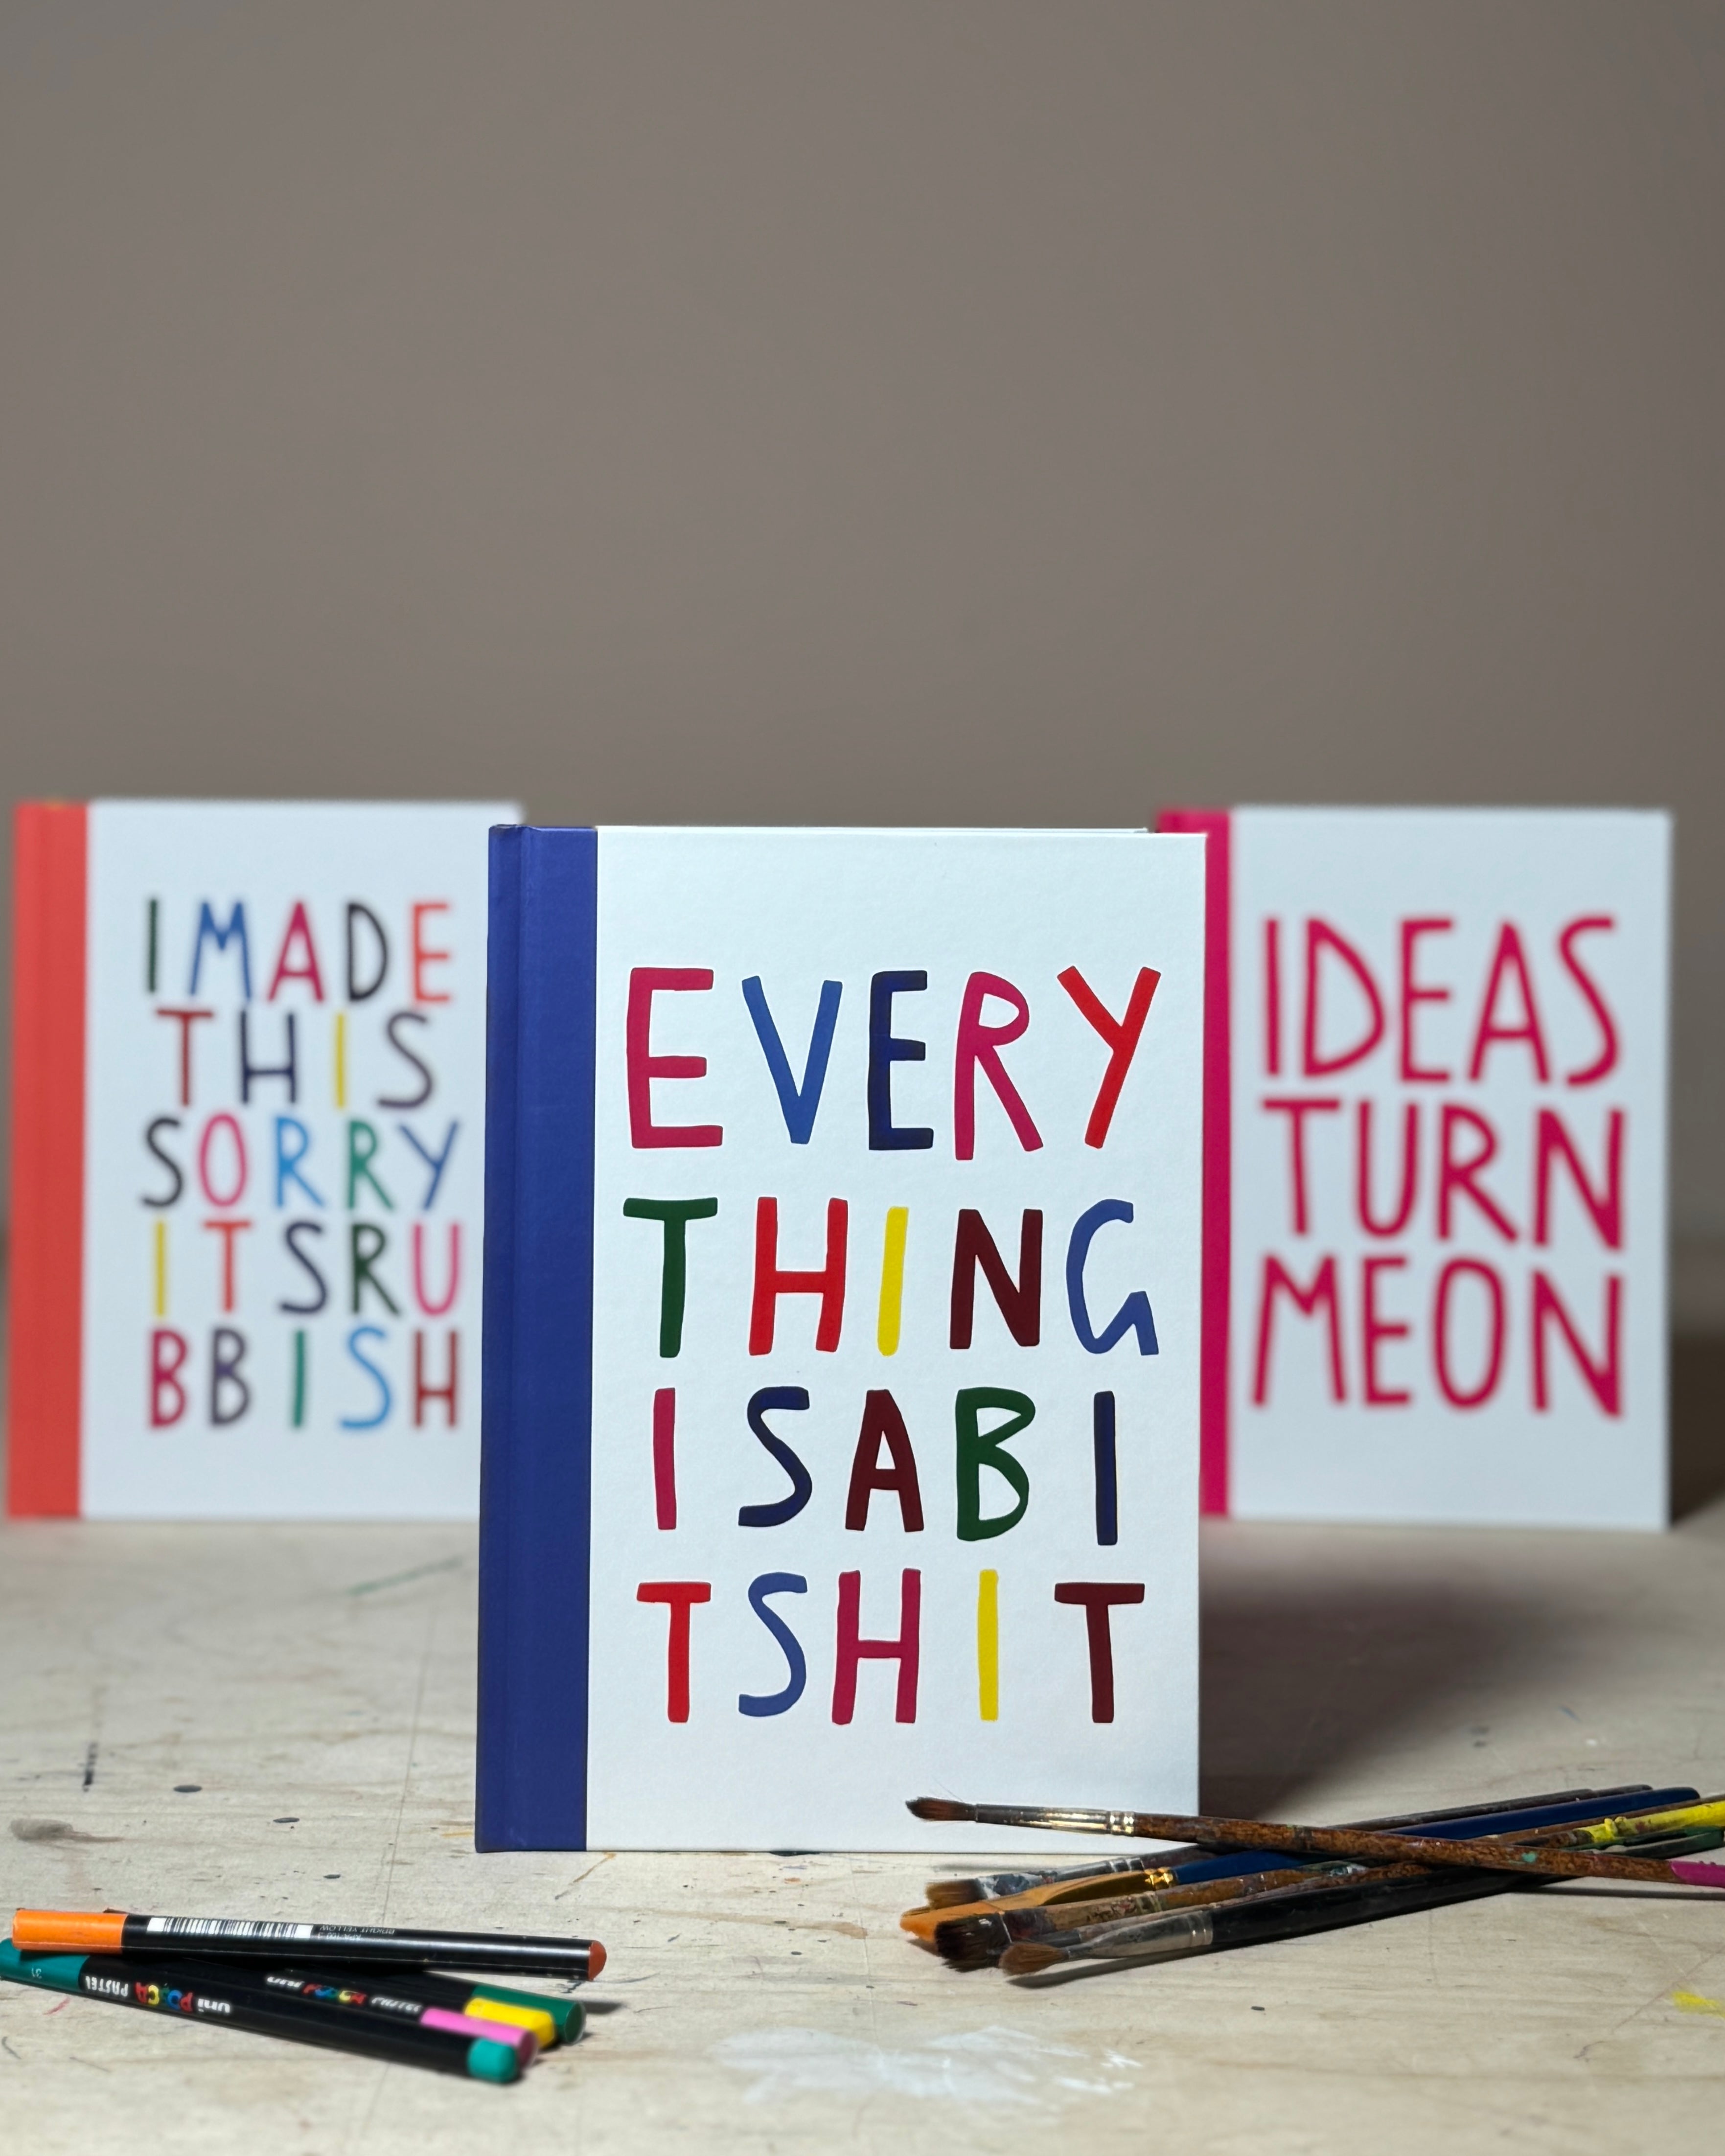 I MADE
THIS
SORRY
ITSRU
BBISH
EVERY
THING
ISABI
TSHIT
IDEAS
TURN
MEON
BRIGHT YELLOW
uni POSCA PASTEL
31
uni POSCA PASTEL